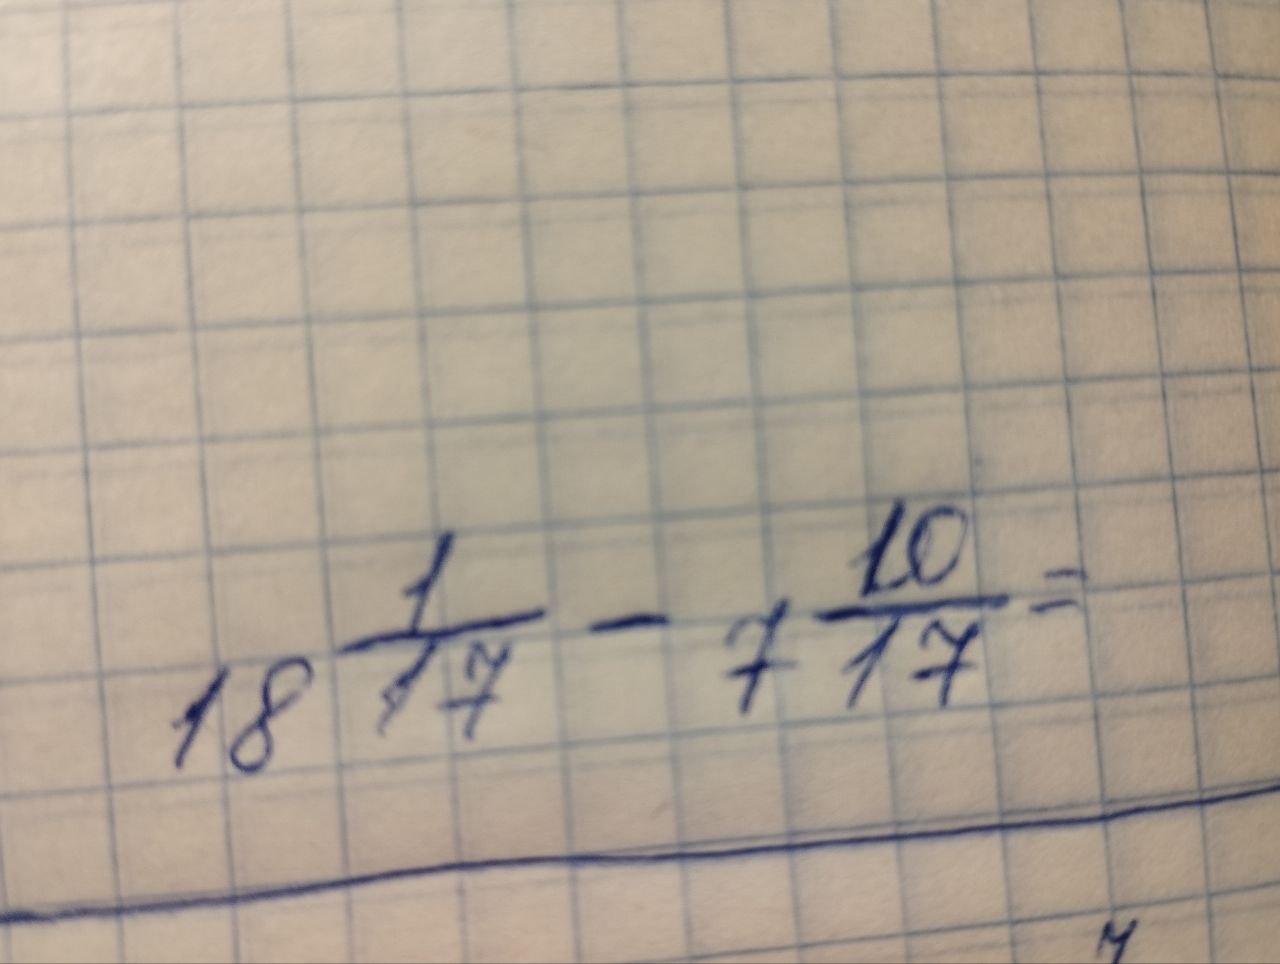 18 1/17 - 7 10/17 =